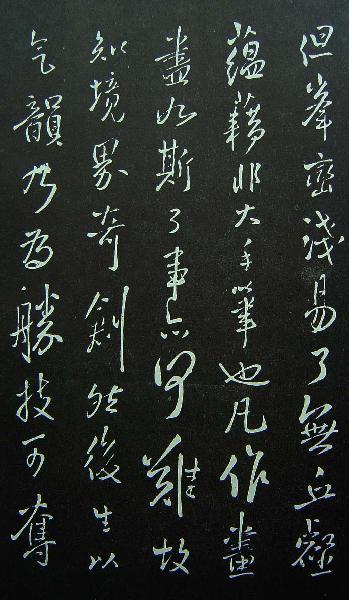 但峯巒淺易了無丘壑
蘊藉非大手筆也凡作畫
盡如斯了事亦何難故
知境界奇創然後生以
气韻乃為勝技可奪